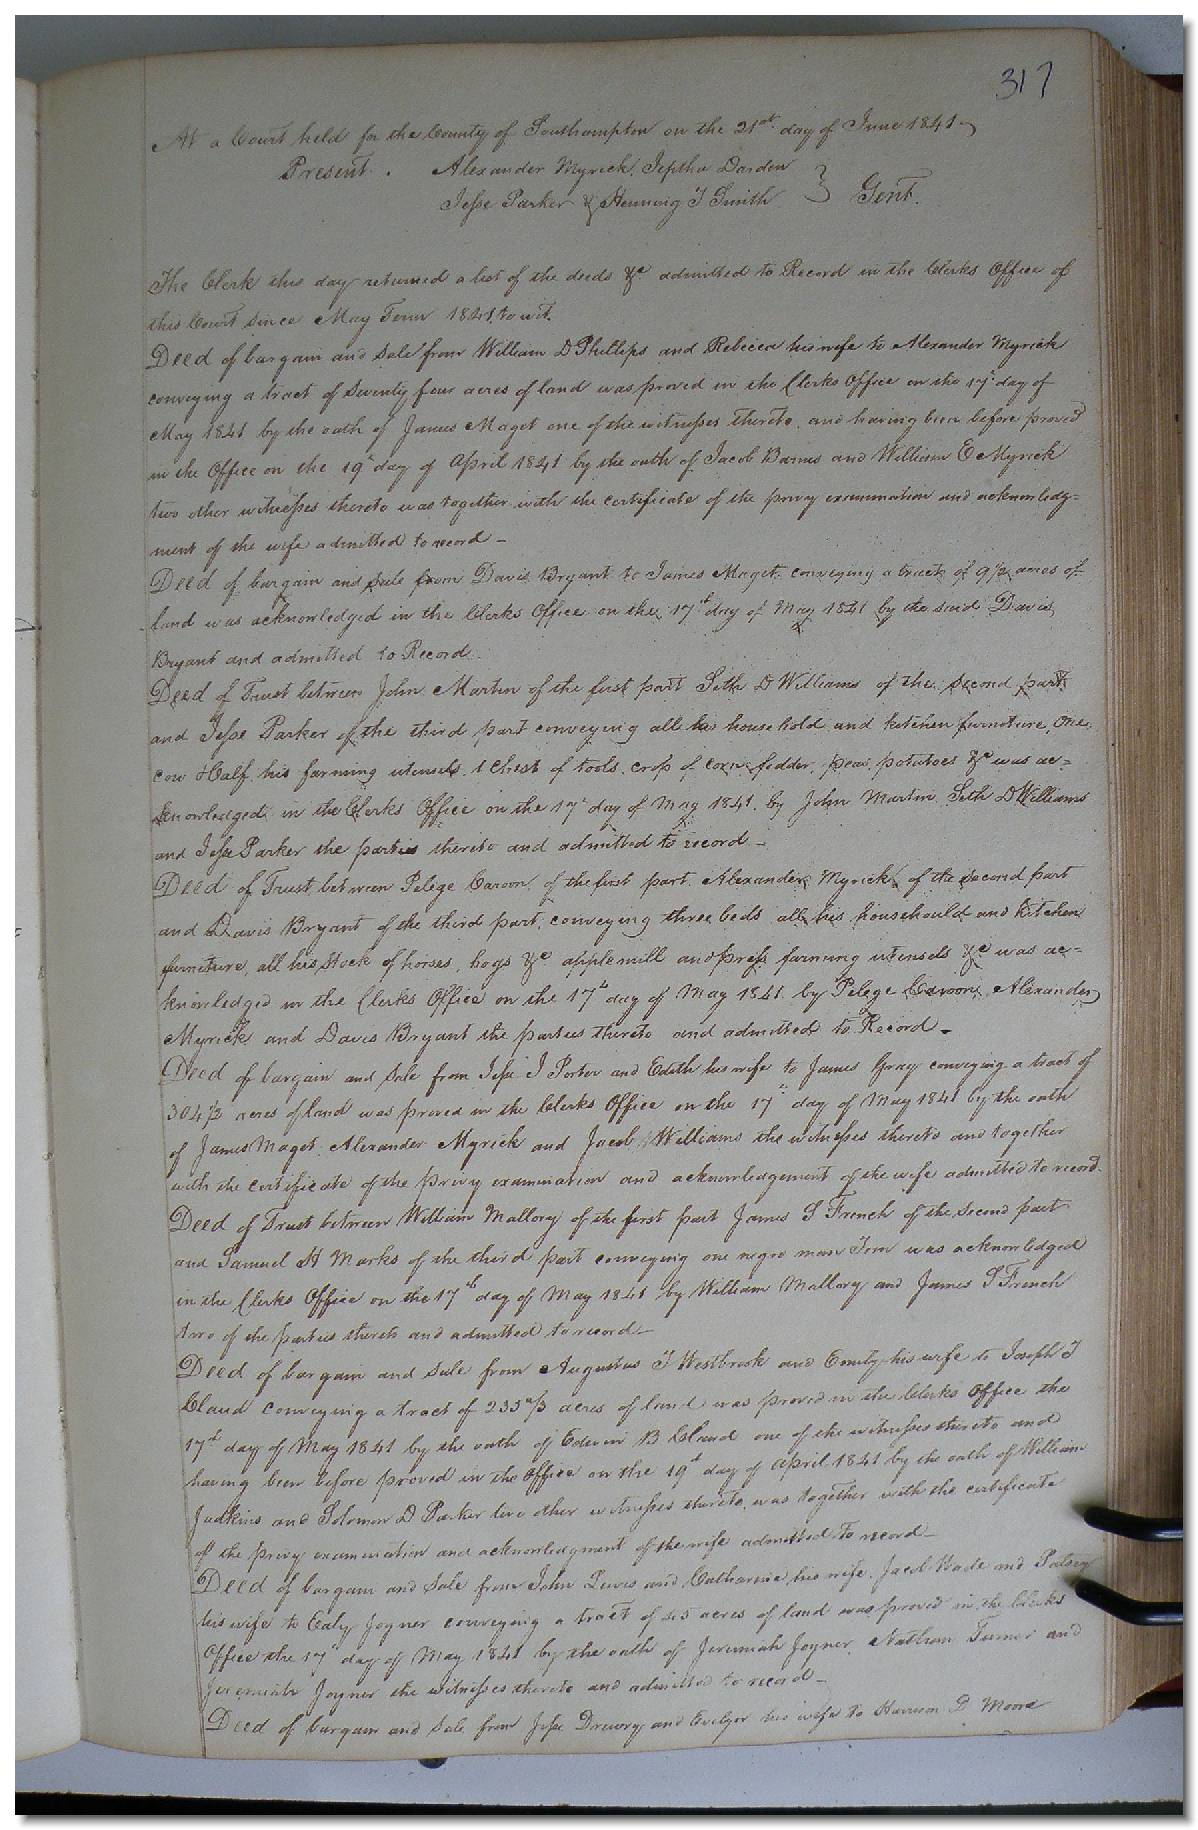 317
At a Court held for the County of Southampton on the 21st day of June 1841
Present. Alexander Myrick, Jeptha Darden
Jesse Parker & Hennwig T Smith } Gent.
The Clerk this day returned a list of the deeds &c admitted to Record in the Clerks Office of
this Court since May Term 1841, to wit.
Deed of bargain and sale from William D Phillips and Rebecca his wife to Alexander Myrick
conveying a tract of seventy four acres of land was proved in the Clerks Office on the 17th day of
May 1841 by the oath of James Maget one of the witnesses thereto, and having been before proved
in the Office on the 19th day of April 1841 by the oath of Jacob Barnes and William E Myrick
two other witnesses thereto was together with the certificate of the privy examination and acknowledg=
ment of the wife admitted to record -
Deed of bargain and sale from Davis Bryant to James Maget conveying a tract of 9 1/2 acres of
land was acknowledged in the Clerks Office on the 17th day of May 1841 by the said Davis
Bryant and admitted to Record.
Deed of Trust between John Martin of the first part Seth D Williams of the second part
and Jesse Parker of the third part conveying all his household and kitchen furniture, one
cow & Calf, his farming utensels, 1 Chest of tools, crop of corn fodder, peas, potatoes &c was ac=
knowledged in the Clerks Office on the 17th day of May 1841. by John Martin Seth D Williams
and Jesse Parker the parties thereto and admitted to record -
Deed of Trust between Pelege Caroon, of the first part, Alexander Myrick of the second part
and Davis Bryant of the third part, conveying three beds all his household and kitchen
furniture, all his stock of horses, hogs &c apple mill and press farming utensels &c was ac=
knowledged in the Clerks Office on the 17th day of May 1841. by Pelege Caroon, Alexander
Myrick and Davis Bryant the parties thereto and admitted to Record -
Deed of bargain and sale from Jesse J Porter and Edith his wife to James Gray conveying a tract of
304 1/2 acres of land was proved in the Clerks Office on the 17th day of May 1841 by the oath
of James Maget, Alexander Myrick and Jacob Williams the witnesses thereto and together
with the certificate of the privy examination and acknowledgement of the wife admitted to record.
Deed of Trust between William Mallory of the first part James S French of the second part
and Samuel H Marks of the third part conveying one negro man Tom was acknowledged
in the Clerks Office on the 17th day of May 1841 by William Mallory and James S French
two of the parties thereto and admitted to record -
Deed of bargain and sale from Augustus T Westbrook and Emily his wife to Joseph T
Claud conveying a tract of acres of land was proved in the Clerks Office the
17th day of May 1841 by the oath of Edwin B Claud one of the witnesses thereto and
having been before proved in the Office on the 19th day of April 1841 by the oath of William
Judkins and Solomon D Parker two other witnesses thereto, was together with the certificate
of the privy examination and acknowledgment of the wife admitted to record -
Deed of bargain and sale from John Lewis and Catharine his wife, Jacob Wade and Patsey
his wife to Ealy Joyner conveying a tract of 45 acres of land was proved in the Clerks
Office the 17th day of May 1841 by the oath of Jeremiah Joyner, Nathan Turner and
Jeremiah Joyner the witnesses thereto and admitted to record -
Deed of bargain and sale from Jesse Drewry and his wife to Harrison P Moore